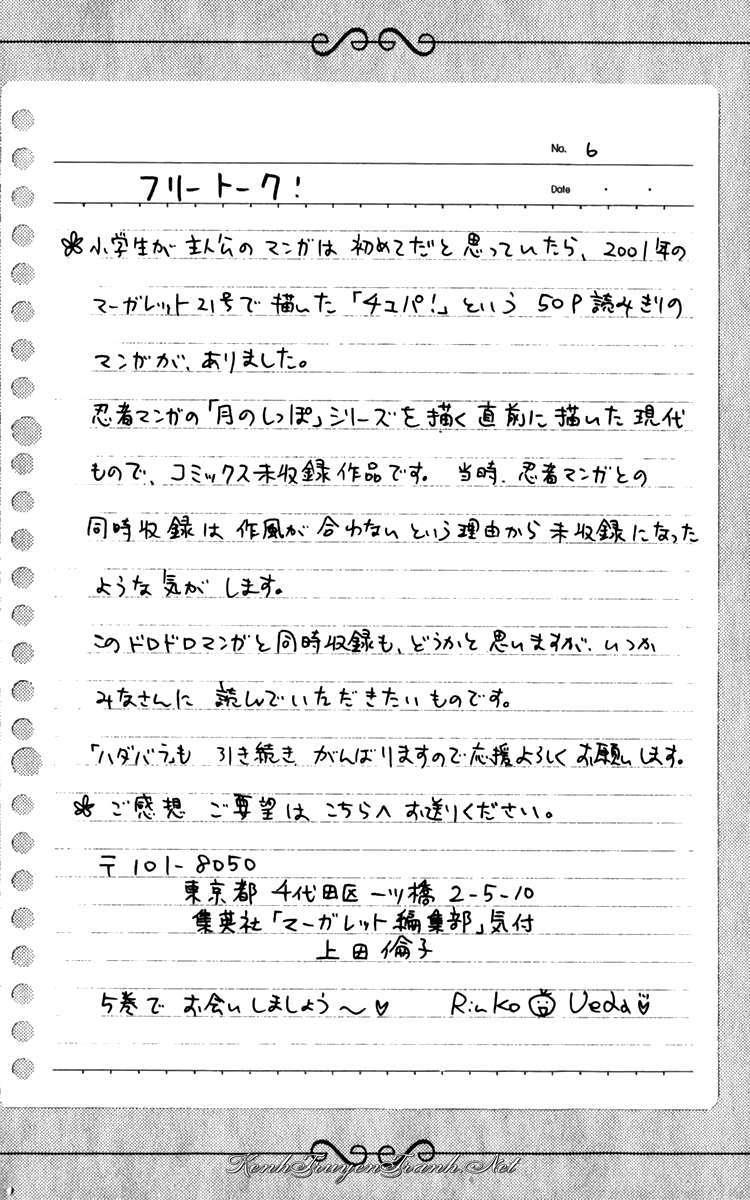 No. 6
フリートーク!
Date ・ ・
❀小学生が主人公のマンガは初めてだと思っていたら、2001年の
マーガレット21号で描いた「チュパ!」という50P読みきりの
マンガが、ありました。
忍者マンガの「月のしっぽ」シリーズを描く直前に描いた現代
もので、コミックス未収録作品です。当時、忍者マンガとの
同時収録は作風が合わないという理由から未収録になった
ような気がします。
このドロドロマンガと同時収録も、どうかと思いますが、いつか
みなさんに読んでいただきたいものです。
「ハダバラ」も引き続きがんばりますので応援よろしくお願いします。
❀ご感想ご要望はこちらへお送りください。
〒101-8050
東京都4代田区一ツ橋2-5-10
集英社「マーガレット編集部」気付
上田倫子
5巻でお会いしましょう〜♡ Rinko Ueda
KenhTruyenTranh.Net